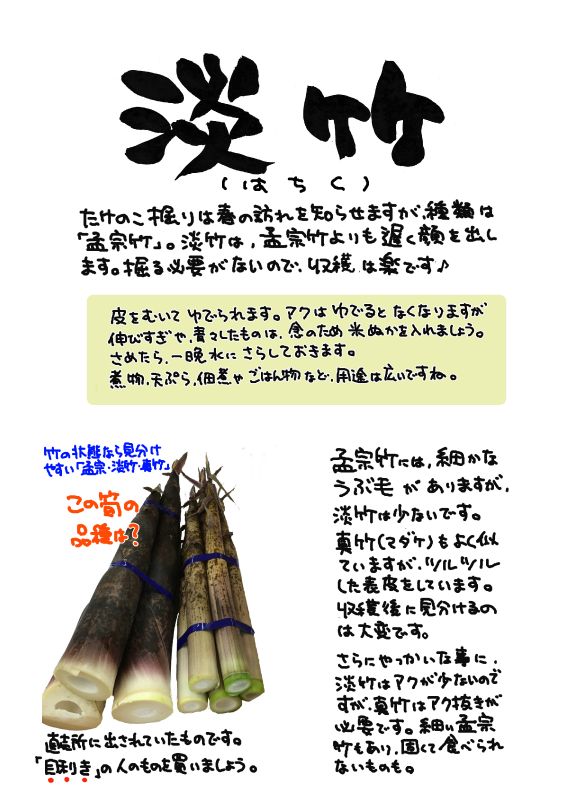 淡竹
(はちく)
たけのこ掘りは春の訪れを知らせますが、種類は
「孟宗竹」。淡竹は、孟宗竹よりも遅く顔を出し
ます。掘る必要がないので、収穫は楽です♪
皮をむいてゆでられます。アクはゆでるとなくなりますが
伸びすぎや、青々したものは、念のため米ぬかを入れましょう。
さめたら、一晩水にさらしておきます。
煮物、天ぷら、佃煮やごはん物など、用途は広いですね。
竹の状態なら見分け
やすい「孟宗・淡竹・真竹」
この筍の
品種は?
孟宗竹には、細かな
うぶ毛がありますが、
淡竹は少ないです。
真竹(マダケ)もよく似
ていますが、ツルツル
した表皮をしています。
収穫後に見分けるの
は大変です。
さらにやっかいな事に、
淡竹はアクが少ないので
すが、真竹はアク抜きが
必要です。細い孟宗
竹もあり、固くて食べられ
ないものも。
直売所に出されていたものです。
「目利き」の人のものを買いましょう。